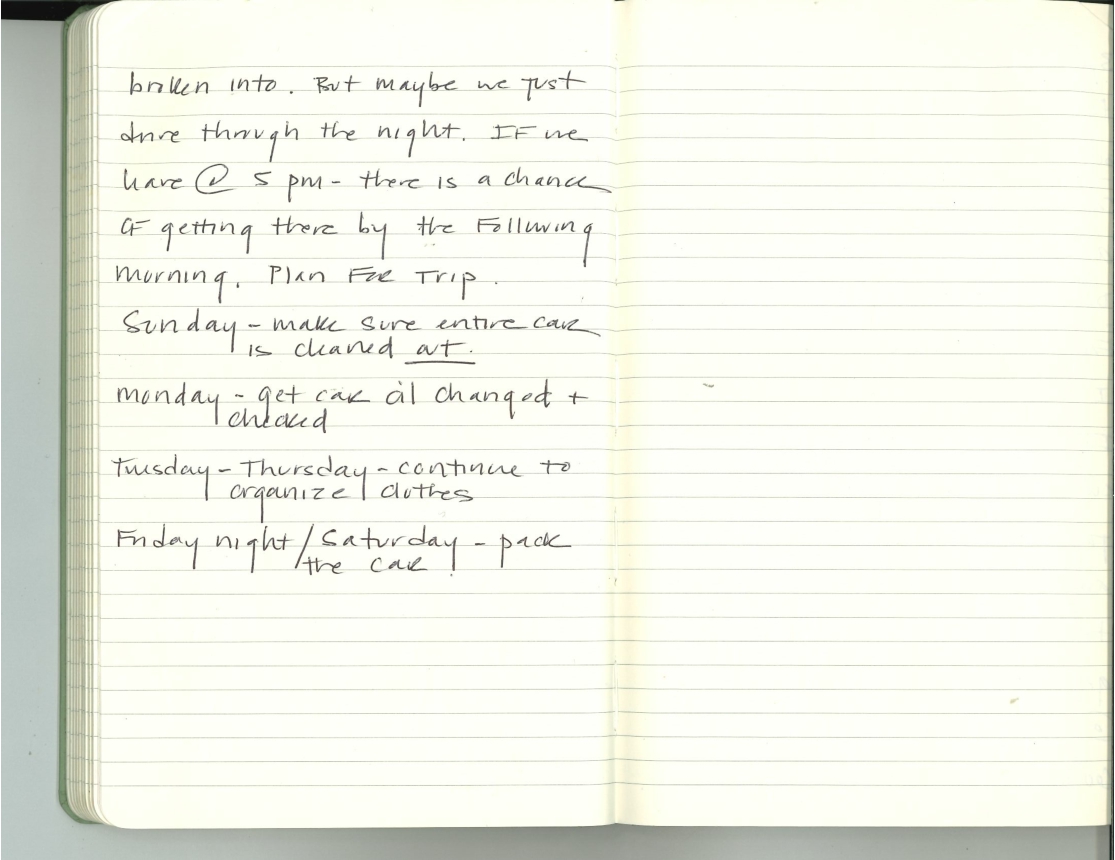 broken into. But maybe we just
drive through the night. IF we
leave @ 5 pm - there is a chance
OF getting there by the Following
morning. Plan For Trip.
Sunday - make sure entire car
is cleaned out.
monday - get car oil changed +
checked
Tuesday - Thursday - continue to
organize clothes
Friday night / Saturday - pack
the car